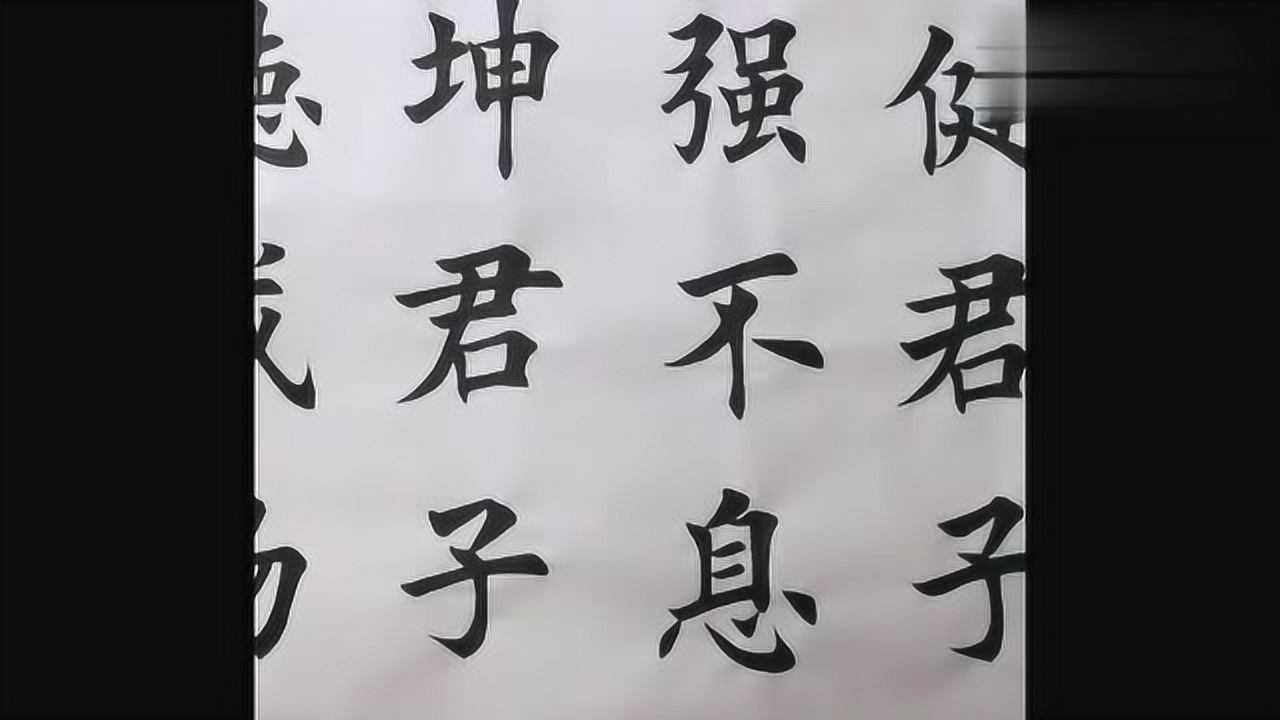 健君子
强不息
坤君子